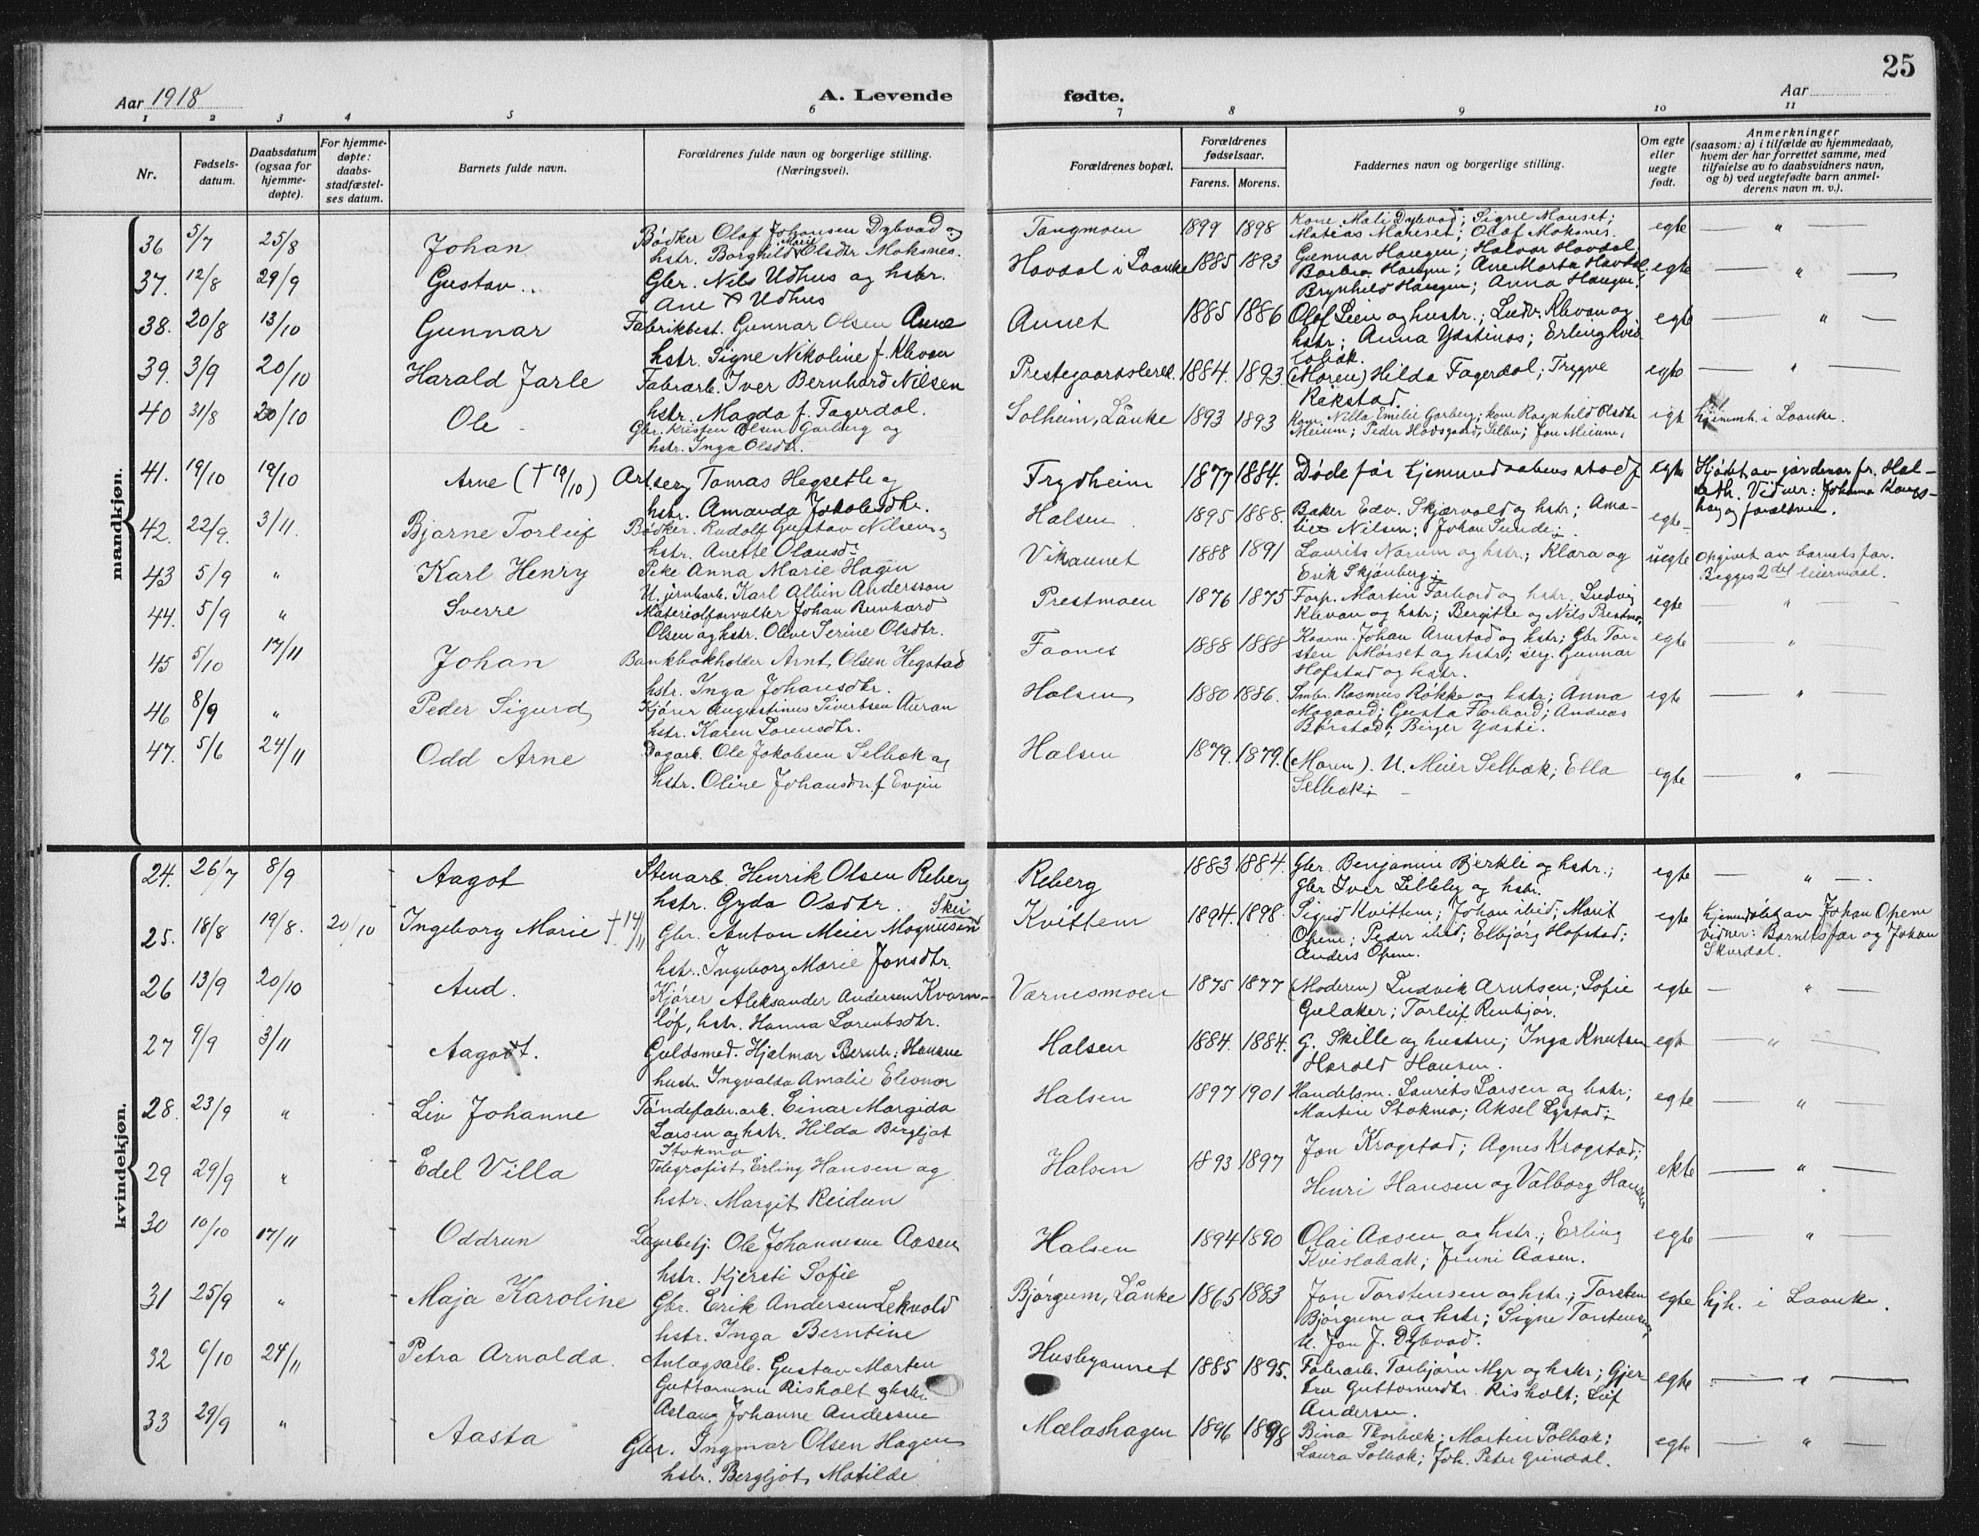 25
Aar 1918
A. Levende
fødte.
Aar
1 2 3 4 5 6 7 8 9 10 11
Nr.
Fødsels-
datum.
Daabsdatum
(ogsaa for
hjemme-
døpte).
For hjemme-
døpte:
daabs-
stadfæstel-
ses datum.
Barnets fulde navn.
Forældrenes fulde navn og borgerlige stilling.
(Næringsvei).
Forældrenes bopæl.
Forældrenes
fødselsaar.
Farens. Morens.
Faddernes navn og borgerlige stilling.
Om egte
eller
uegte
født.
Anmerkninger
(saasom: a) i tilfælde av hjemmedaab,
hvem der har forrettet samme, med
tilføielse av to daabsvidners navn,
og b) ved uegtefødte barn anmel-
derens navn m. v.).
mandkjøn.
36 5/7 25/8 Johan Bødker Olaf Johansen Dybvad og Tangmoen 1899 1898 Kone Mali Dybvad; Signe Mauset; egte "
hstr. Borghild Marie Olsdtr Moksnes. Matias Mauset; Olaf Moksnes.
37. 12/8 29/9 Gustav Gbr. Nils Udhus og hstr. Havdal i Laanke 1885 1893 Gunnar Haugen; Halvor Havdal egte "
Ane Udhus Barbra Haugen; Ane Marta Havdal;
Brynhild Haugen; Anna Haugen.
38. 20/8 13/10 Gunnar Fabrikbest. Gunnar Olsen Aune Aunet 1885 1886 Olaf Leien og hustr.; Ludv. Klevan og egte "
hstr. Signe Nikoline f. Klevan hstr; Anna Ystines; Erling Kvis
lobak.
39. 3/9 20/10 Harald Jarle Fabrarb. Iver Bernhard Nilsen Prestegaardsleret. 1884. 1893 (Moren) Hilda Fagerdal; Trygve egte "
hstr. Magda f. Fagerdal. Rikstad.
40 31/8 20/10 Ole Gbr. Kristen Olsen Garberg og Solheim, Lånke 1893 1893 Kone Nilla Emilie Garberg; kone Ragnhild Olsdtr egte hjemmh. i Laanke.
hstr. Inga Olsdtr. Meium; Peder Hodsgaard, Selbu; Jon Meium.
41. 19/10 19/10 Arne († 19/10) Tomas Hegsetle og Frydheim 1877 1884. Døde før hjemmedaabens stadf egte Hjdøbt av jordemor fr. Hal-
hstr. Amanda Jakobsdtr. Vidner: Johanna Kongs-
haug og forældrene.
42. 22/9. 3/11. Bjarne Torleif Bødker. Rudolf Gustav Nilsen og Halsen 1895 1888. Baker Edv. Skjærvold og hstr; Ama- egte
hstr. Anette Olausdtr. lie Nilsen; Johan Sunde.
43 5/9 " Karl Henry Pike Anna Marie Hagen Vikaunet 1888 1891 Laurits Narum og hstr.; Klara og uegte Opgivet av barnets far.
U. jernbarb. Karl Albin Andersson Erik Skjønberg. Begges 2det leiermaal.
44. 5/9 " Sverre Materialforvalter Johan Bernhard Prestmoen 1876 1875 Forp. Martin Forbord og hstr; Ludvig egte "
Olsen og hstr. Olive Serine Olsdtr. Klevan og hstr; Bergitte og Nils Prestmo.
45 5/10 17/11 Johan Bankbokholder Arnt Olsen Hegstad Faanes 1888 1888 Johan Arnstad og hstr; Gbr Tor- egte "
hstr. Inga Johansdtr. sten Mørset og hstr; serg. Gunnar
Hofstad og hstr.
46 8/9 " Peder Sigurd Kjører Augustinus Sivertsen Auran Halsen 1880 1886. Smbr. Rasmus Røkke og hstr; Anna egte "
hstr. Karen Lorensdtr. Mogaard; Gusta Forbord; Andreas
Børstad; Birger Ysti.
47. 5/6 24/11 Odd Arne Dagarb. Ole Jakobsen Selbæk og Halsen 1879. 1879. (Moren). U. Meier Selbæk; Ella egte "
hstr. Olive Johansdtr f Evjen Selbæk.
kvindekjøn.
24. 26/7 8/9 Aagot Stenarb. Henrik Olsen Reberg Reberg 1883 1884. Gbr. Benjamin Bjerkli og hstr.; egte "
hstr. Gyda Olsdtr. Gbr Iver Lilleby og hstr.
25. 18/8 19/8. 20/10 Ingeborg Marie † 14/11 Gbr. Anton Meier Magnusen Skei Kvittem 1894. 1898. Sigrid Kvittem; Johan ibid; Marit egte hjemdøbt av Johan Opem
hstr. Ingeborg Marie Jonsdtr. Opem; Peder ibid; Elbjørg Hofstad; Vidner: Barnets far og Johan
Anders Opem. Skurdal.
26 13/9 20/10 Aud. Kjører Aleksander Andersen Kvarm- Værnesmoen 1875 1877 (Moderen) Ludvik Arntsen; Sofie egte "
løf, hstr. Hanna Lorentsdtr. Gulaker; Torleif Renbjør.
27 9/9 3/11 Aagot. Guldsmed. Hjalmar Bernh. Hansen Halsen 1884. 1884. G. Skille og hustru; Inga Knutsen egte "
hustr. Ingvalda Amalie Eleonor Harald Hansen.
28. 23/9 " Liv Johanne Tøndefabr.arb. Einar Margido Halsen 1897 1901 Handelsm. Laurits Larsen og hstr; egte "
Larsen og hstr. Hilda Bergljot Martin Stokmo; Aksel Lystad.
Stokmo
29 29/9 " Edel Villa Telegrafist Erling Hansen og Halsen 1893 1897 Jon Krogstad; Agnes Krogstad; ekte "
hstr. Margit Reidun Henri Hansen og Valborg Hansen
30 10/10 17/11 Oddrun Lagerbetj. Ole Johannesen Aasen Halsen 1894 1890 Olai Aasen og hstr.; Erling egte "
hstr. Kjersti Sofie Kvislabak; Jenni Aasen.
31 25/9 " Maja Karoline Gbr. Erik Andersen Lekvold Bjørgum, Lånke 1865 1883 Jon Torstensen og hstr.; Torsten egte hjh. i Laanke.
hstr. Inga Berntine Bjørgum og hstr; Signe Torstensen
U. Jon J. Dybvad.
32 6/10 24/11 Petra Arnolda. Anlægsarb. Gustav Morten Husbyaunet 1885 1895. Fabrarb. Torbjørn Myr og hstr; Gjer egte "
Guttormsen Risholt og hstr tru Guttormsdtr. Risholt; Leif
Aslaug Johanne Andersen Andersen.
33 29/9 " Aasta Gbr. Ingmar Olsen Hagen Mælashagen 1896 1898 Bina Thorbæk; Martin Solbak; egte "
hstr. Bergljot Matilde Laura Solbak; Joh. Peter Grindal.